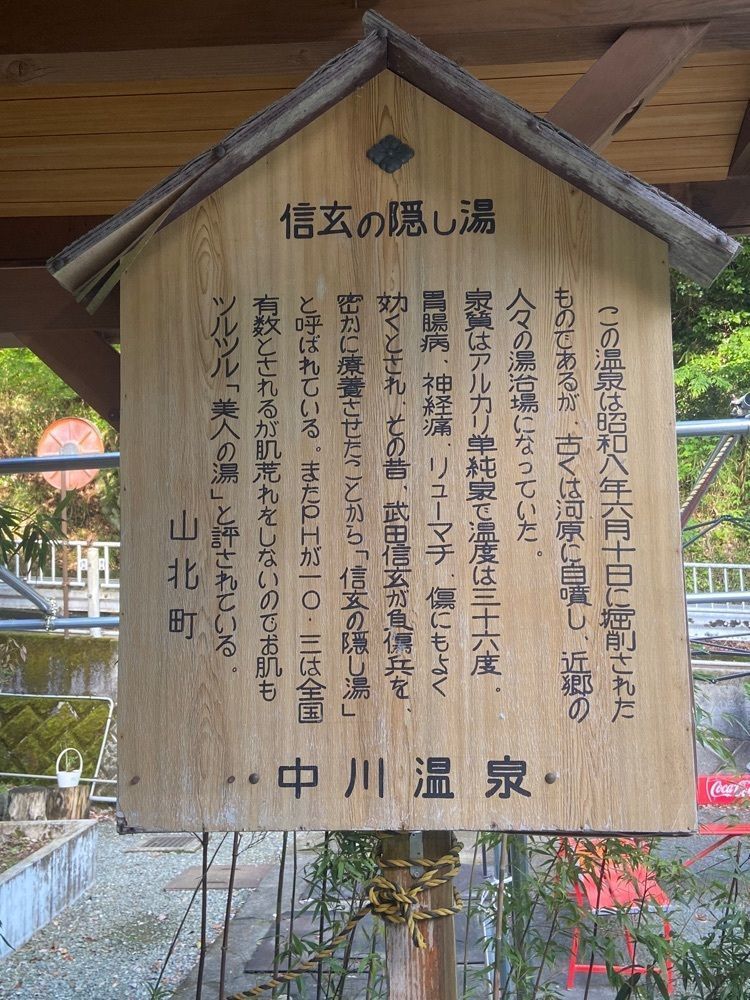 信玄の隠し湯
この温泉は昭和八年六月十日に堀削された
ものであるが、古くは河原に自噴し、近郷の
人々の湯治場になっていた。
泉質はアルカリ単純泉で温度は三十六度。
胃腸病、神経痛、リューマチ、傷にもよく
効くとされ、その昔、武田信玄が負傷兵を、
密かに療養させたことから「信玄の隠し湯」
と呼ばれている。またpHが一〇・三は全国
有数とされるが肌荒れをしないのでお肌も
ツルツル「美人の湯」と評されている。
山北町
中川温泉
Coca-Cola